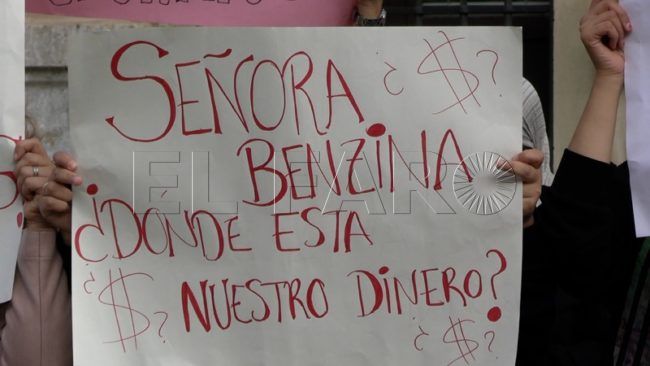 SEÑORA ¿$?
BENZINA
EL FARO
¿DÓNDE ESTA
¿$? NUESTRO DINERO?
¿$?